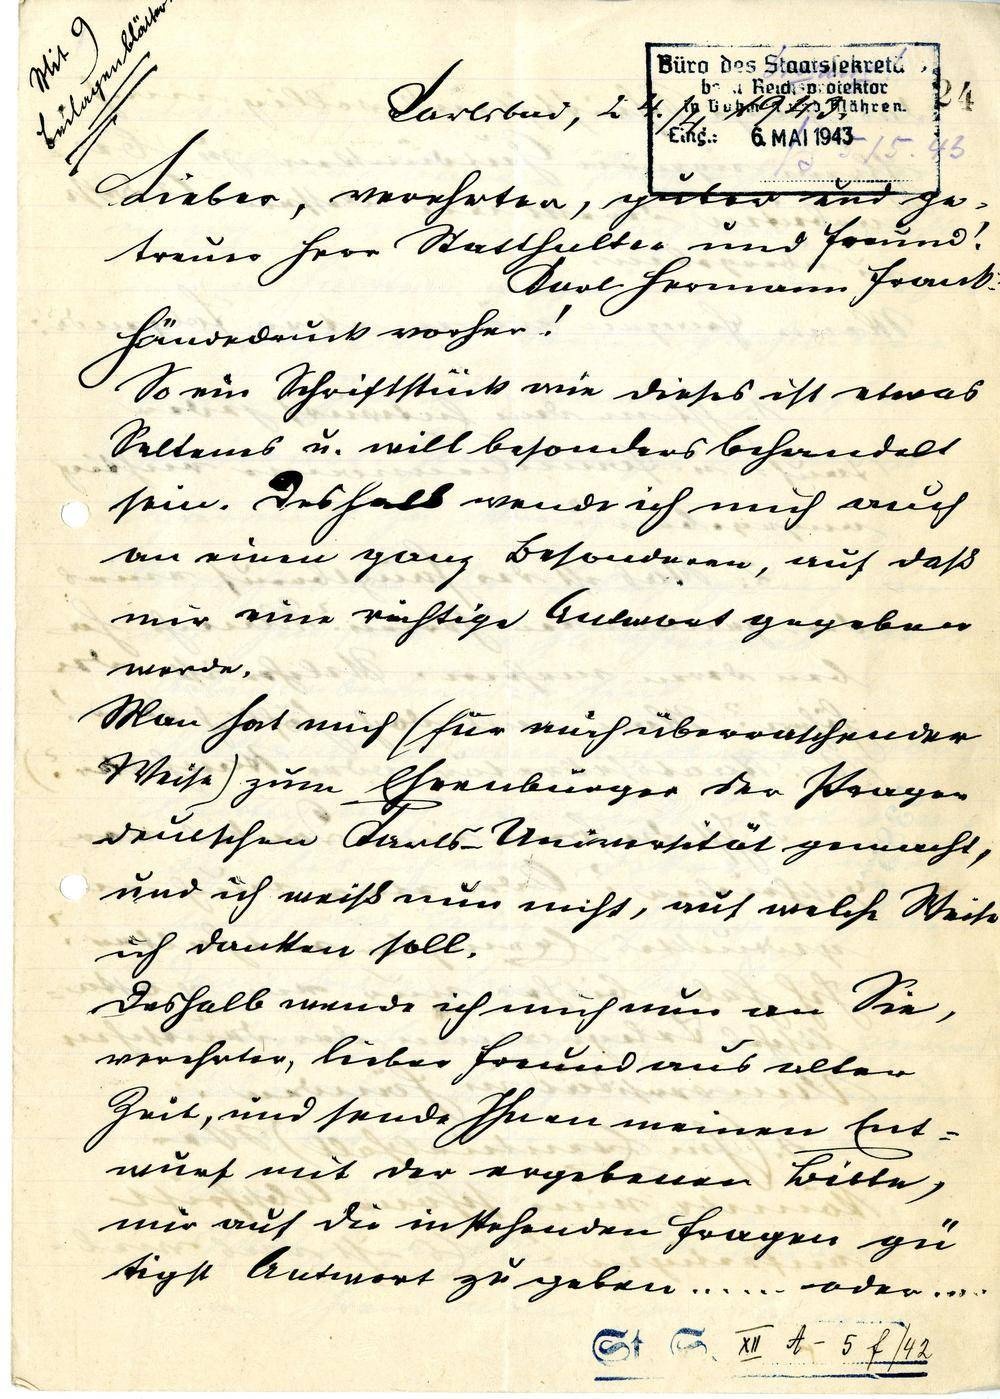 Mit 9
Beilagenblätter
Büro des Staatssekretä
beim Reichsprotektor
in Böhmen und Mähren.
Eing.: 6. MAI 1943
24
Karlsbad, 24.
Lieber, verehrter, guter und ge-
treuer Herr Statthalter und Freund!
Karl Hermann Frank.
Händedruck vorher!
So ein Schriftstück wie dieses ist etwas
Seltenes u. will besonders behandelt
sein. Deshalb wende ich mich auch
an einen ganz Besonderen, auf daß
mir eine richtige Antwort gegeben
werde.
Man hat mich (für mich überraschender
Weise) zum Ehrenbürger der Prager
deutschen Karls-Universität gemacht,
und ich weiß nun nicht, auf welche Weise
ich danken soll.
Deshalb wende ich mich nun an Sie,
verehrter, lieber Freund aus alter
Zeit, und sende Ihnen meinen Ent-
wurf mit der ergebenen Bitte,
mir auf die instehenden Fragen gü
tigst Antwort zu geben...... oder....
St S. XII A - 5 f/42